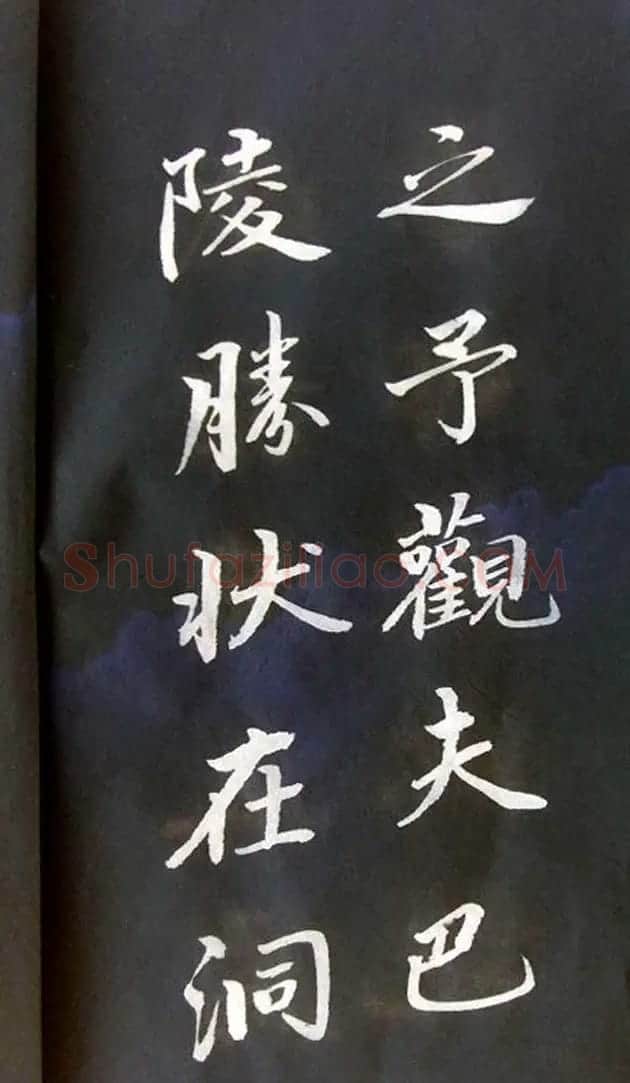 之予觀夫巴
陵勝状在洞
Shufaziliao.COM